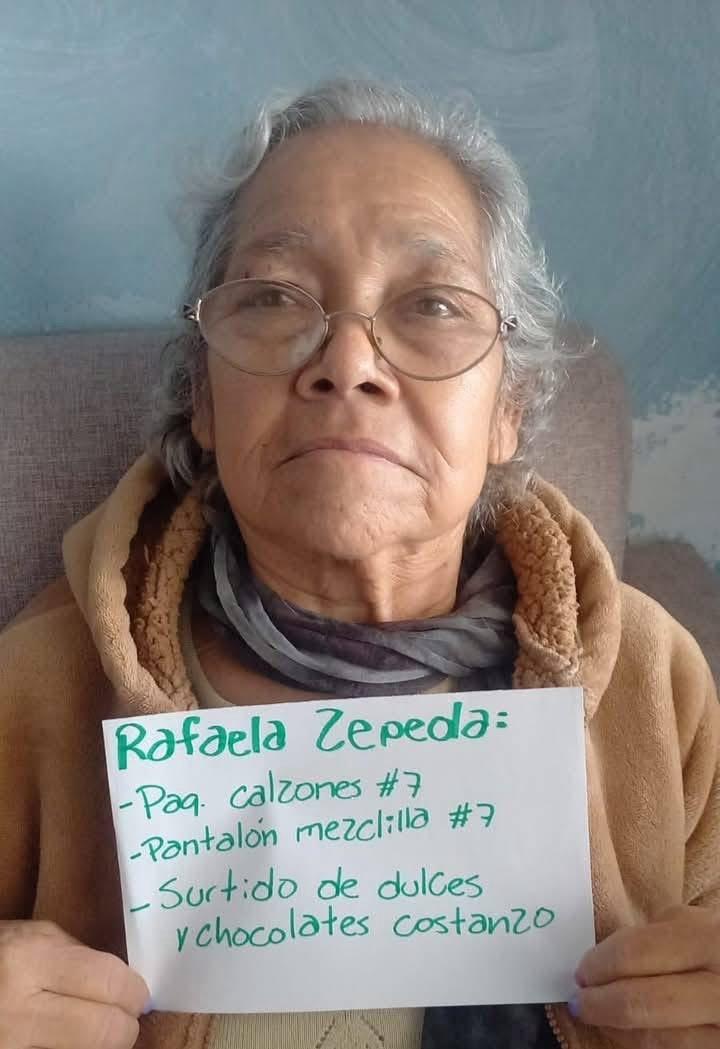 Rafaela Zepeda:
-Paq. calzones #7
-Pantalón mezclilla #7
- Surtido de dulces
y chocolates costanzo